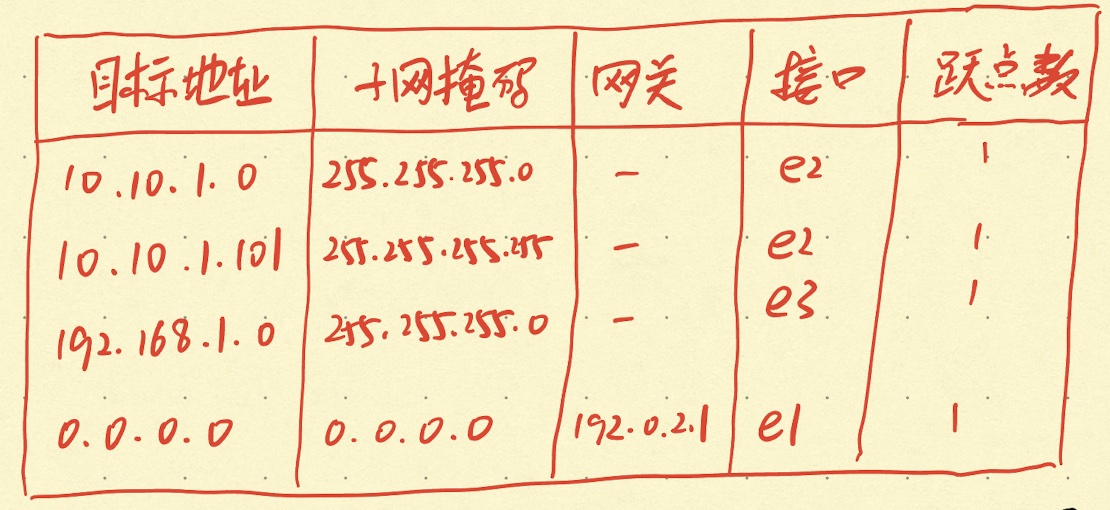 目标地址 子网掩码 网关 接口 跃点数
10.10.1.0 255.255.255.0 - e2 1
10.10.1.101 255.255.255.255 - e2 1
192.168.1.0 255.255.255.0 - e3 1
0.0.0.0 0.0.0.0 192.0.2.1 e1 1